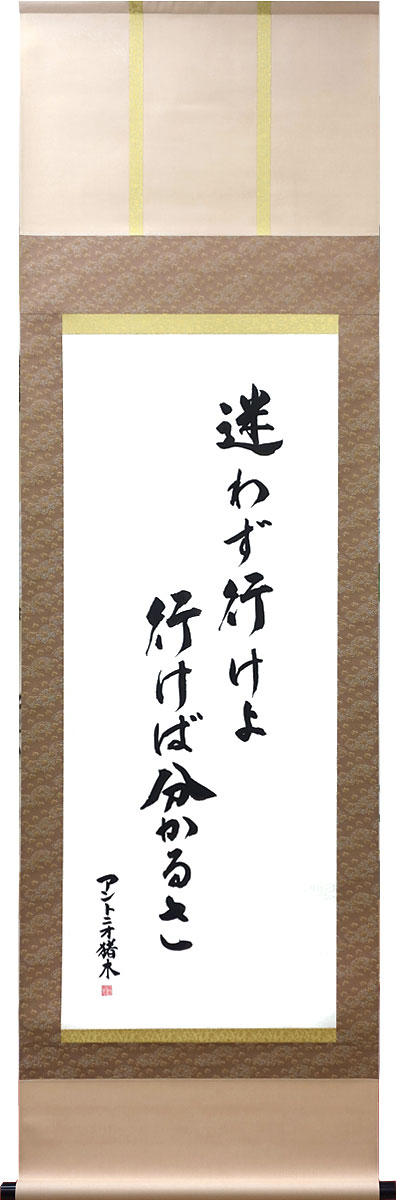 迷わず行けよ
行けば分かるさ
アントニオ猪木